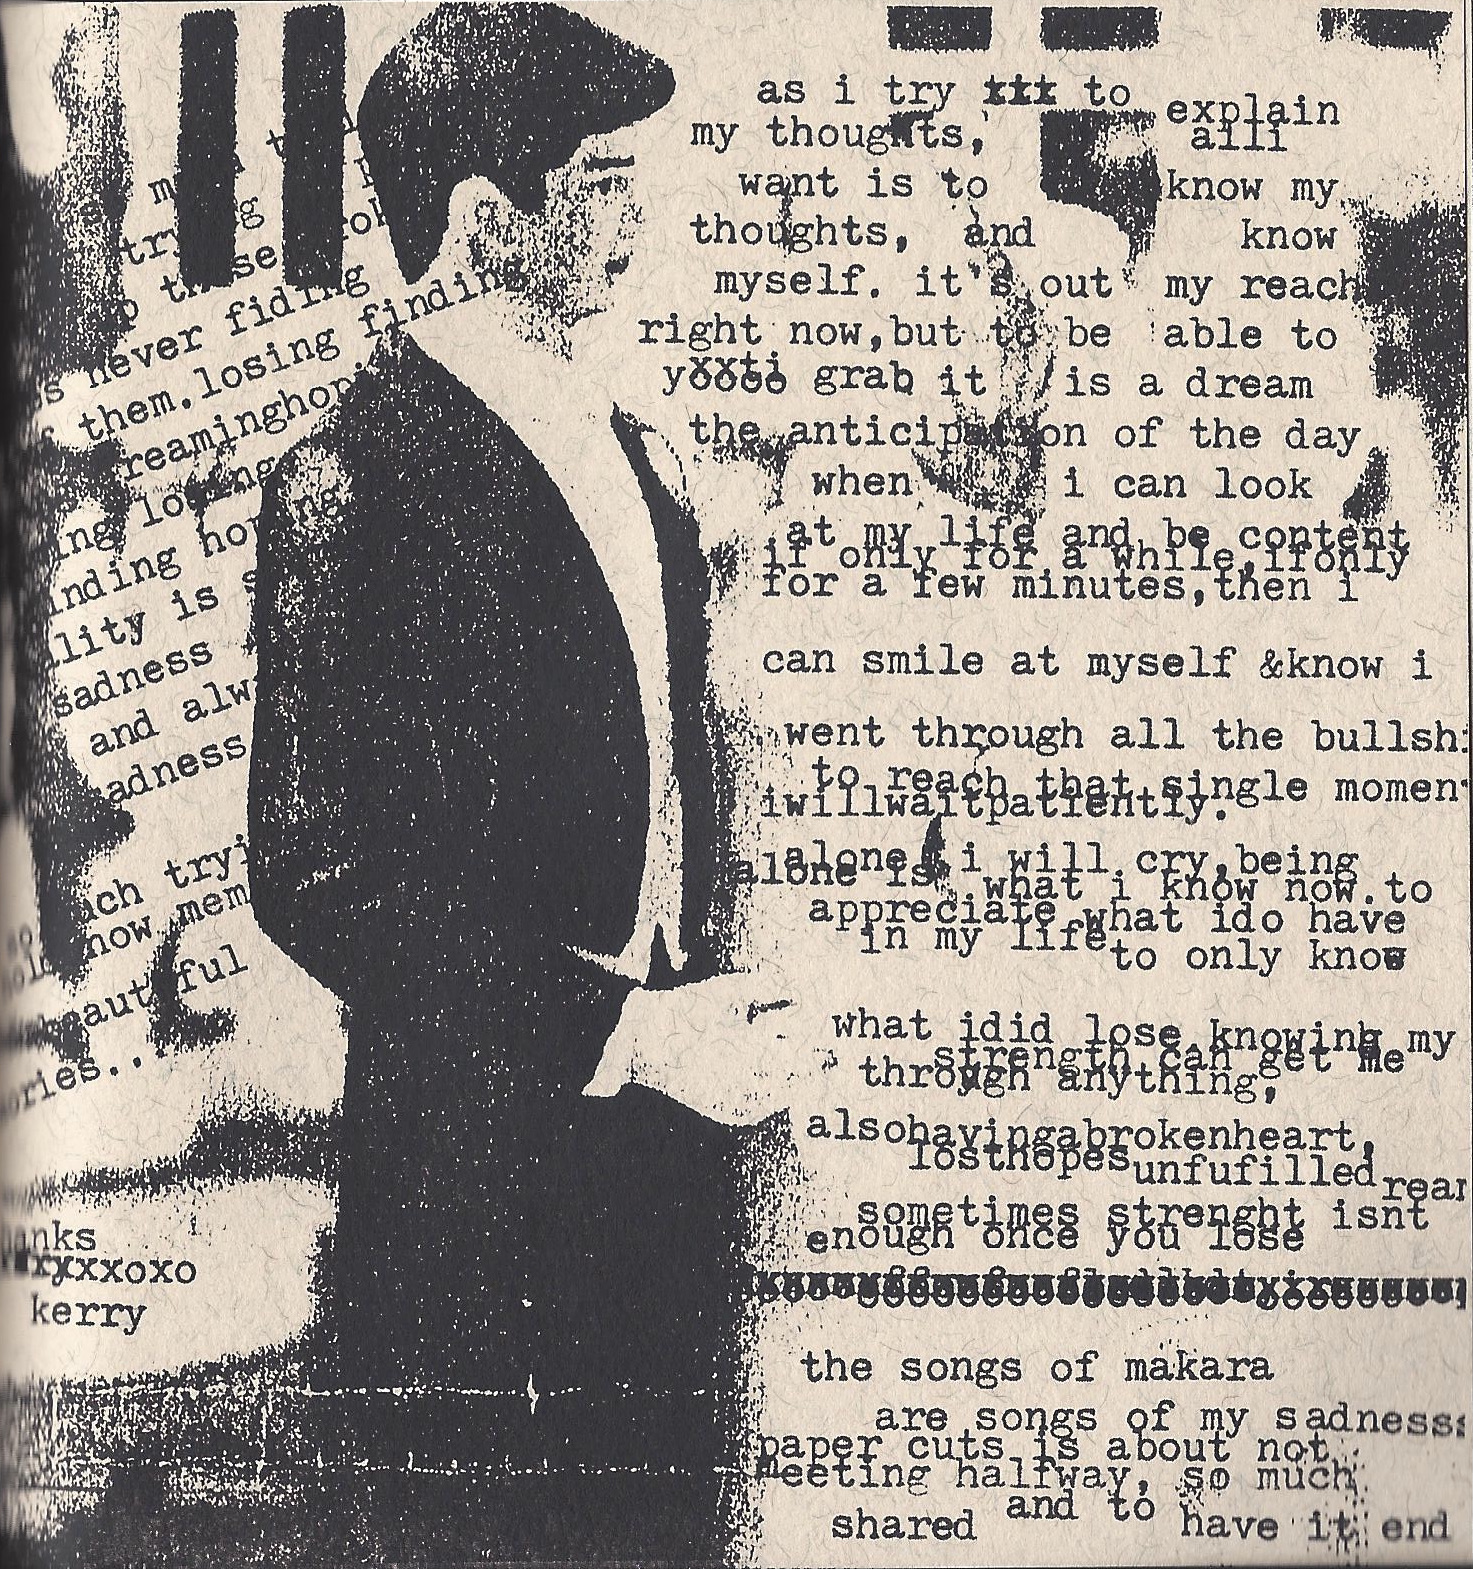 never fiding
them.losing finding
reaminghopi
ing losing
inding hoping
lity is s
sadness
and alw
adness
ach tryi
now mem
eautiful
ories...
anks
xxxoxo
kerry
as i try xxx to explain
my thoughts, alli
want is to know my
thoughts, and know
myself. it's out my reach
right now,but to be able to
grab it is a dream
the anticipation of the day
when i can look
at my life and be content
if only for a while,ifonly
for a few minutes,then i
can smile at myself &know i
went through all the bullsh
to reach that single momen
iwillwaitpatiently.
alone i will cry,being
alone is what i know now.to
appreciate what ido have
in my life to only know
what idid lose knowing my
strength can get me
through anything,
alsohavingabrokenheart,
losthopesunfufilled
sometimes strenght isnt
enough once you lose
the songs of makara
are songs of my sadness
paper cuts is about not
meeting halfway, so much
shared and to have it end